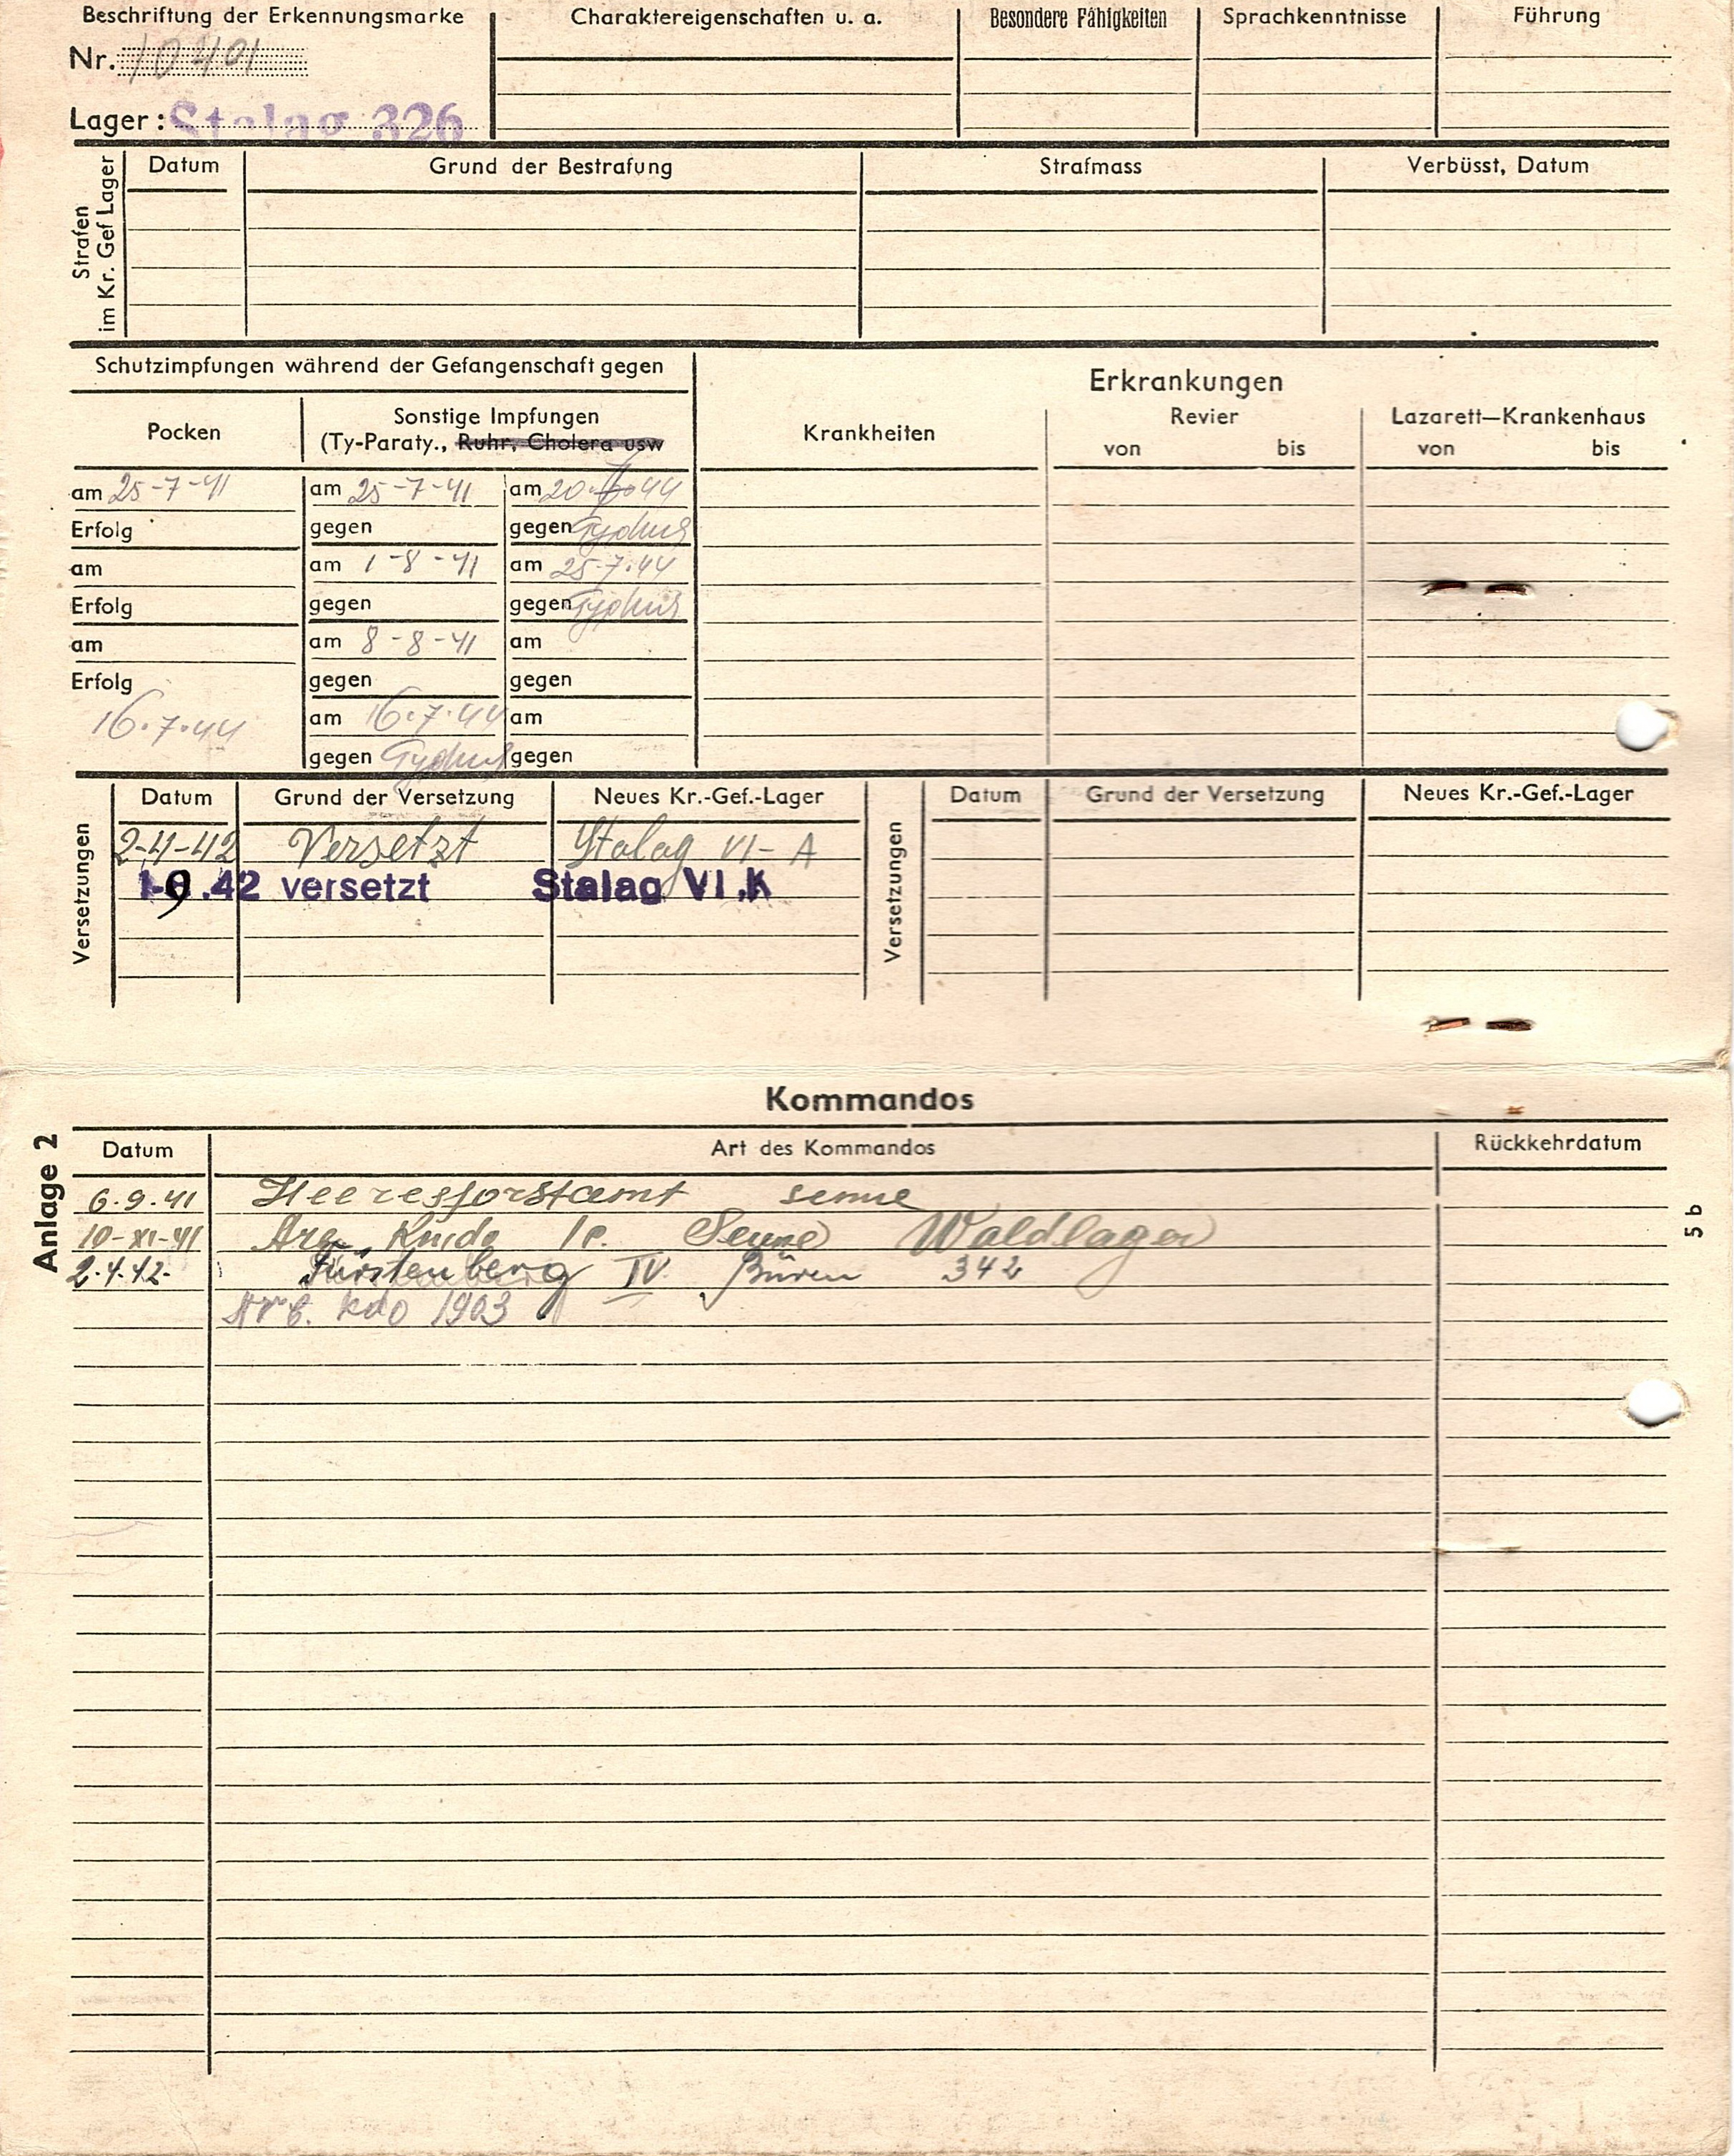 Beschriftung der Erkennungsmarke
Nr. 10401
Lager: Stalag 326
Charaktereigenschaften u. a.
Besondere Fähigkeiten
Sprachkenntnisse
Führung
Strafen
im Kr. Gef Lager
Datum
Grund der Bestrafung
Strafmass
Verbüsst, Datum
Schutzimpfungen während der Gefangenschaft gegen
Pocken
Sonstige Impfungen
(Ty-Paraty., Ruhr, Cholera usw
am 25-7-41
Erfolg
am
Erfolg
am
Erfolg
16.7.44
am 25-7-41
gegen
am 1-8-41
gegen
am 8-8-41
gegen
am 16.7.44
gegen Typhus
am 20. 44
gegen Typhus
am 25.7.44
gegen Typhus
am
gegen
am
gegen
Erkrankungen
Krankheiten
Revier
von bis
Lazarett—Krankenhaus
von bis
Versetzungen
Datum Grund der Versetzung Neues Kr.-Gef.-Lager
2-4-42 Versetzt Stalag VI-A
9.42 versetzt Stalag VI.K
Versetzungen
Datum Grund der Versetzung Neues Kr.-Gef.-Lager
Kommandos
Anlage 2
5b
Datum Art des Kommandos Rückkehrdatum
6.9.41 Heeresforstamt senne
10-XI-41 Senne Waldlager
2.4.42. Fürstenberg IV Büren 342
kdo 1903